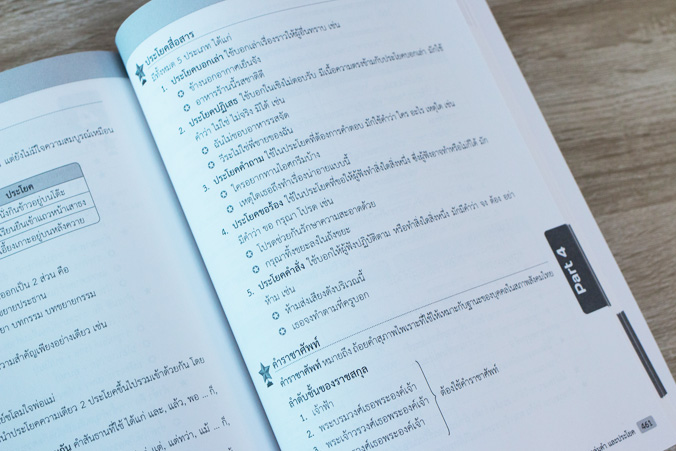 แต่ยังไม่มีใจความสมบูรณ์เหมือน
ประโยค
นั่งกินข้าวอยู่บนโต๊ะ
เรียนยืนเข้าแถวหน้าเสาธง
เอี้ยงเกาะอยู่บนหลังควาย
ออกเป็น 2 ส่วน คือ
ขยายประธาน
บทกรรม บทขยายกรรม
ความสำคัญเพียงอย่างเดียว เช่น
นำประโยคความเดียว 2 ประโยคขึ้นไปรวมเข้าด้วยกัน โดย
คำสันธานที่ใช้ ได้แก่ และ, แล้ว, พอ ... ก็,
แต่, แต่ทว่า, แม้ ... ก็,
ประโยคสื่อสาร
มีทั้งหมด 5 ประเภท ได้แก่
1. ประโยคบอกเล่า ใช้บอกเล่าเรื่องราวให้ผู้อื่นทราบ เช่น
ข้างนอกอากาศเย็นจัง
อาหารร้านนี้รสชาติดี
2. ประโยคปฏิเสธ ใช้บอกในเชิงไม่ตอบรับ มีเนื้อความตรงข้ามกับประโยคบอกเล่า มักใช้
คำว่า ไม่ ไม่ใช่ ไม่จริง มิได้ เช่น
ฉันไม่ชอบอาหารรสจัด
กีระไม่ใช่พี่ชายของฉัน
3. ประโยคคำถาม ใช้ในประโยคที่ต้องการคำตอบ มักใช้คำว่า ใคร อะไร เหตุใด เช่น
ใครอยากทานไอศกรีมบ้าง
เหตุใดเธอถึงทำเรื่องน่าอายแบบนี้
4. ประโยคขอร้อง ใช้ในประโยคที่ขอให้ผู้ฟังทำสิ่งใดสิ่งหนึ่ง ซึ่งผู้ฟังอาจทำหรือไม่ก็ได้ มัก
มีคำว่า ขอ กรุณา โปรด เช่น
โปรดช่วยกันรักษาความสะอาดด้วย
กรุณาทิ้งขยะลงในถังขยะ
5. ประโยคคำสั่ง ใช้บอกให้ผู้ฟังปฏิบัติตาม หรือทำสิ่งใดสิ่งหนึ่ง มักมีคำว่า จง ต้อง อย่า
ห้าม เช่น
ห้ามส่งเสียงดังบริเวณนี้
เธอจงทำตามที่ครูบอก
คำราชาศัพท์
คำราชาศัพท์ หมายถึง ถ้อยคำสุภาพไพเราะที่ใช้ให้เหมาะกับฐานะของบุคคลในสภาพสังคมไทย
ลำดับชั้นของราชสกุล
1. เจ้าฟ้า
2. พระบรมวงศ์เธอพระองค์เจ้า
3. พระเจ้าวรวงศ์เธอพระองค์เจ้า
วงศ์เธอพระองค์เจ้า
ต้องใช้คำราชาศัพท์
Part 4
และประโยค 461